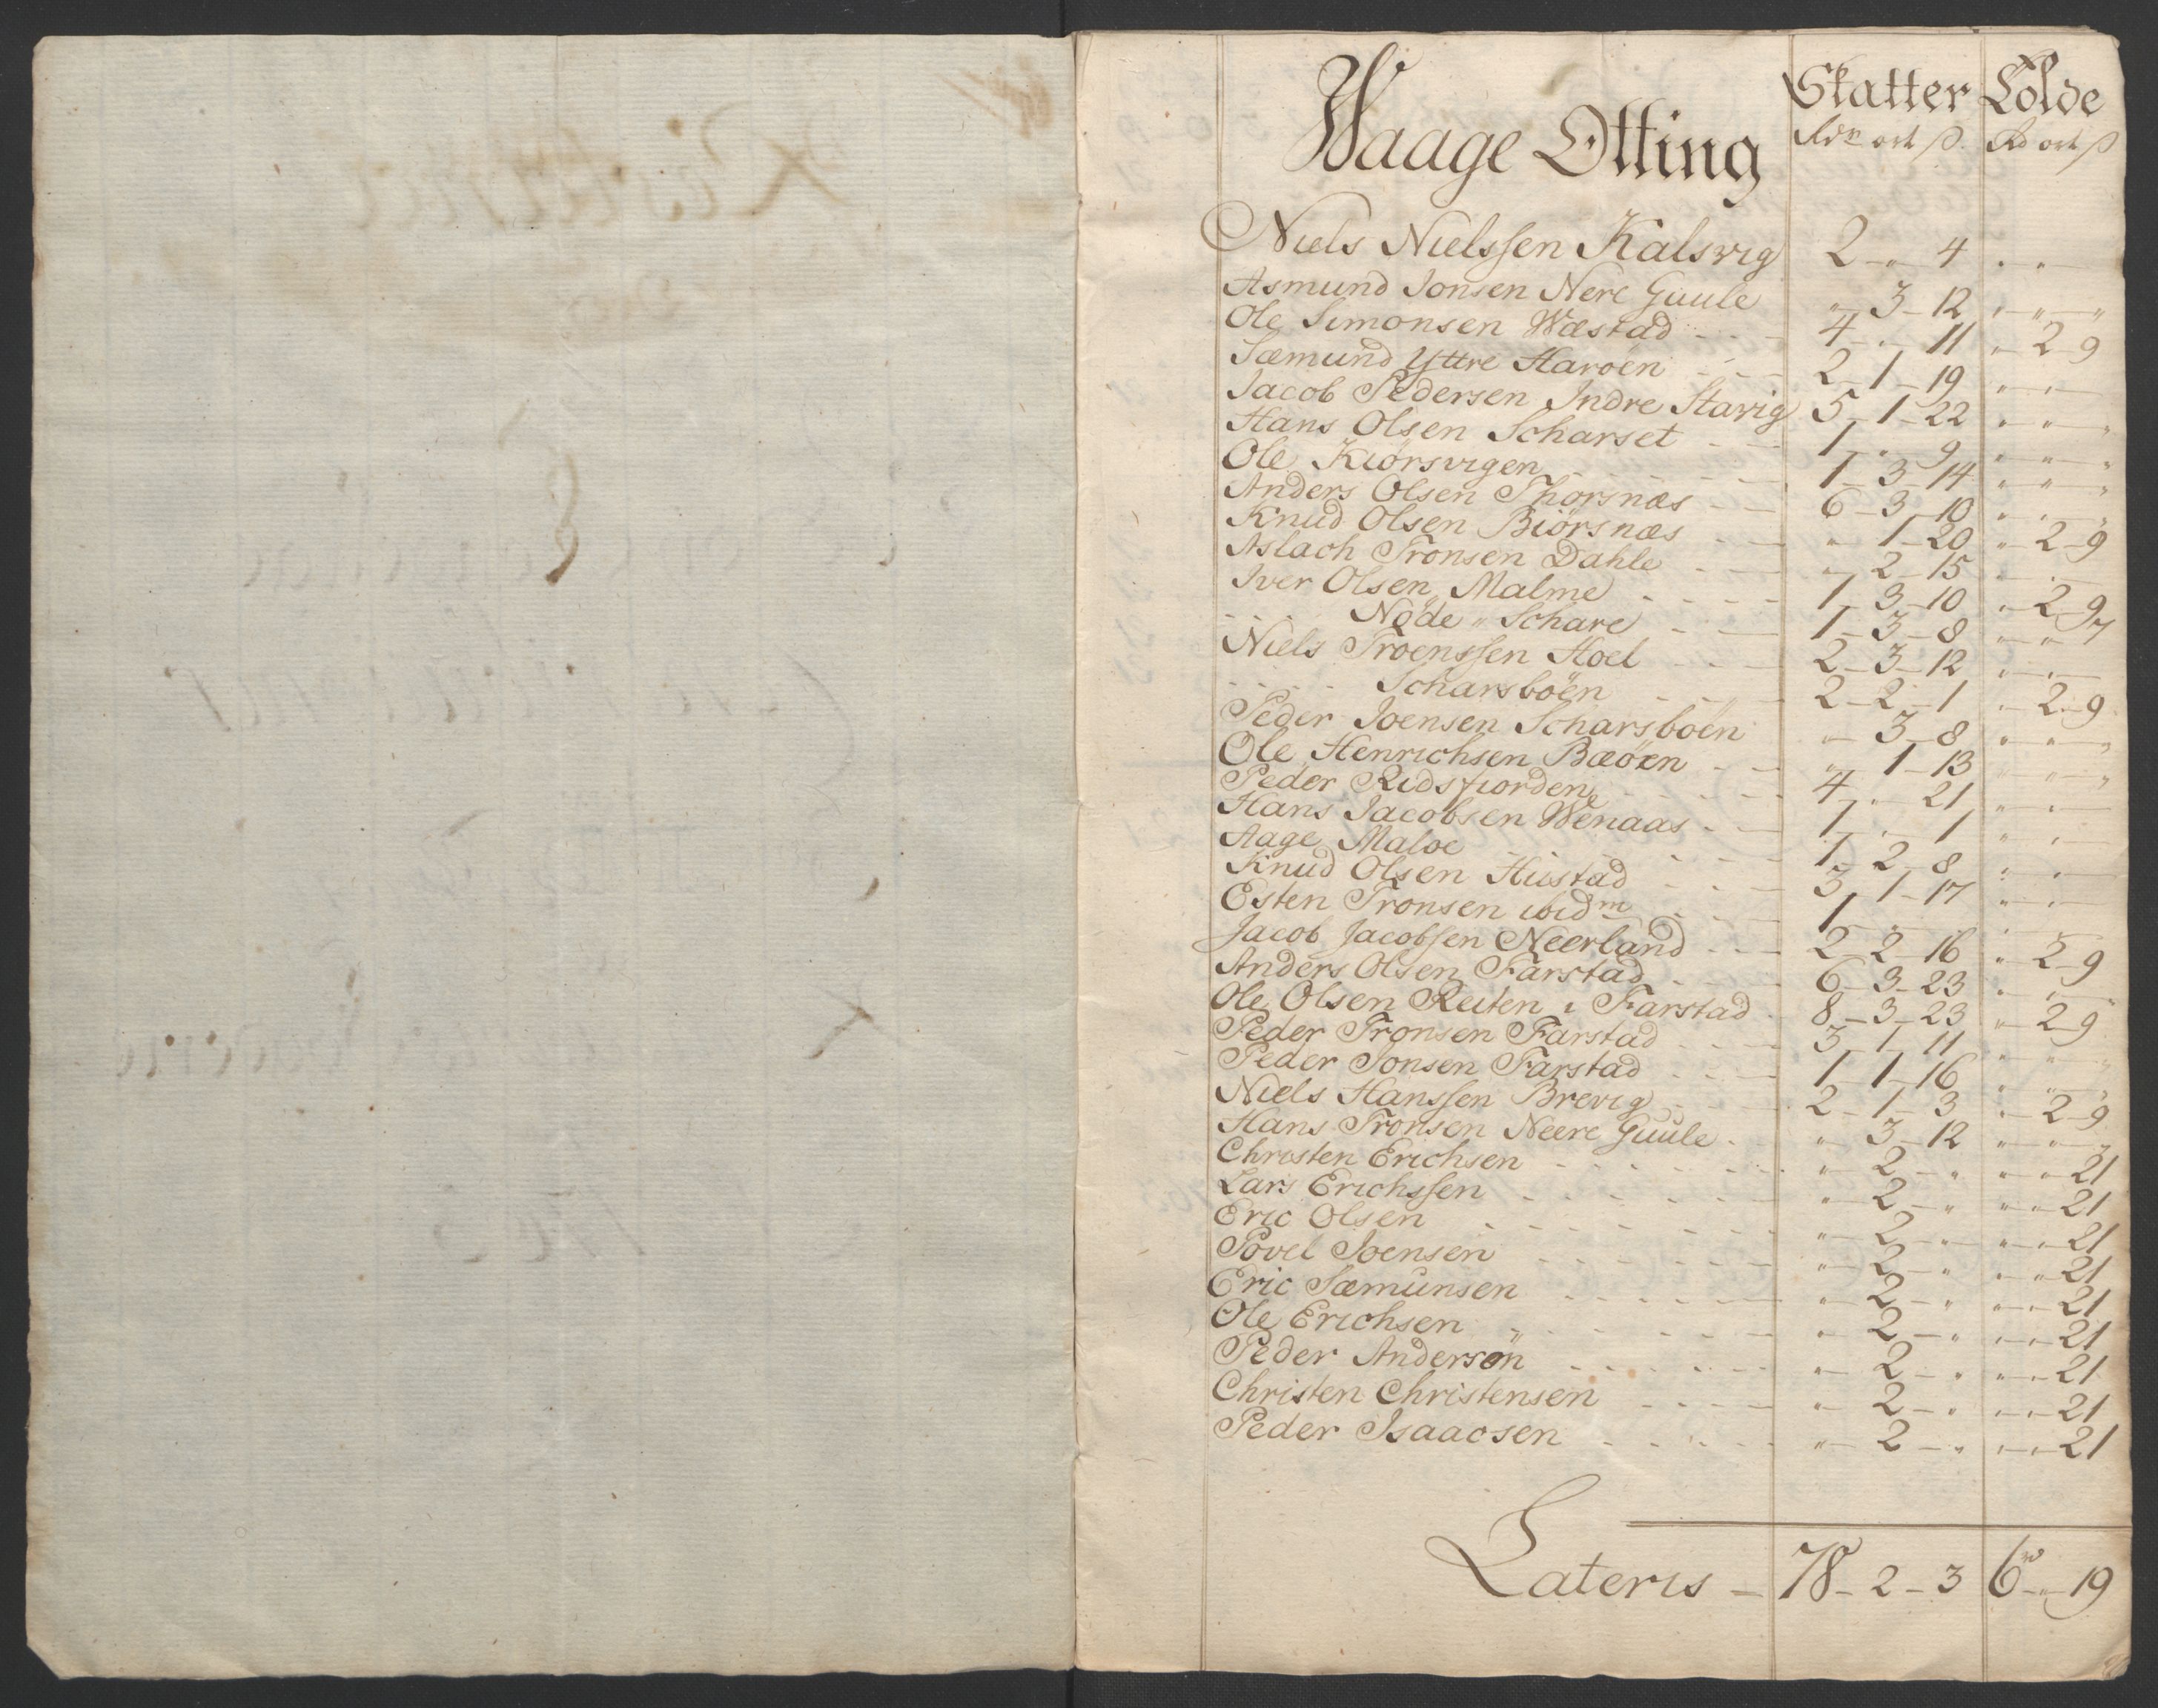 Skatter Tolde
Waage Otting Rdr ort ß Rd ort ß
Niels Nielssen Kalsvig 2 - " 4 " "
Asmund Jonsen Nere Guule " 3 - 12 " " "
Ole Simonsen Wæstad 4 - " 11 " 2 9
Sæmund Yttre Harøen 2 - 1 - 19 " "
Jacob Pedersen Indre Stavig 5 - 1 - 22 " " "
Hans Olsen Scharset 1 " 9 " " "
Ole Kiørsvigen 1 - 3 - 14 " " "
Anders Olsen Thorsnæs 6 - 3 - 10 " " "
Knud Olsen Biørsnæs " 1 - 20 " 2 - 9
Aslach Tronsen Dahle " 2 - 15 " "
Iver Olsen Malme 1 - 3 - 10 " 2 - 9
Nøde " Schare 1 - 3 - 8 " " "
Niels Troenssen Hoel 2 - 3 - 12 " "
Scharsbøen 2 - 2 - 1 " 2 - 9
Peder Joensen Scharsbøen " 3 - 8 " " "
Ole Henrichsen Bæøen " 1 - 13 " " "
Peder Ridsfiorden 4 " 21 " "
Hans Jacobsen Wenaas 1 " 1 " "
Aage Maloe 1 - 2 - 8 " "
Knud Olsen Hustad 3 - 1 - 17 " "
Esten Tronsen ibidm 1 - " "
Jacob Jacobsen Neerland 2 - 2 - 16 " 2 - 9
Anders Olsen Farstad 6 - 3 - 23 " " "
Ole Olsen Reiten i Farstad 8 - 3 - 23 " 2 9
Peder Tronsen Farstad 3 - 1 - 11 " " "
Peder Jonsen Farstad 1 - 1 - 16 " " "
Niels Hanssen Brevig 2 - 1 - 3 " 2 - 9
Hans Tronsen Neere Guule " 3 - 12 " " "
Christen Erichsen " 2 - " " " 21
Lars Erichssen " 2 - " " " 21
Eric Olsen " 2 - " " " 21
Povel Joensen " 2 - " " " 21
Eric Sæmunsen " 2 - " " " 21
Ole Erichsen " 2 - " " " 21
Peder Andersön " 2 - " " " 21
Christen Christensen " 2 - " " " 21
Peder Isaacsen " 2 - " " " 21
Lateris - 78 - 2 - 3 6 - " - 19